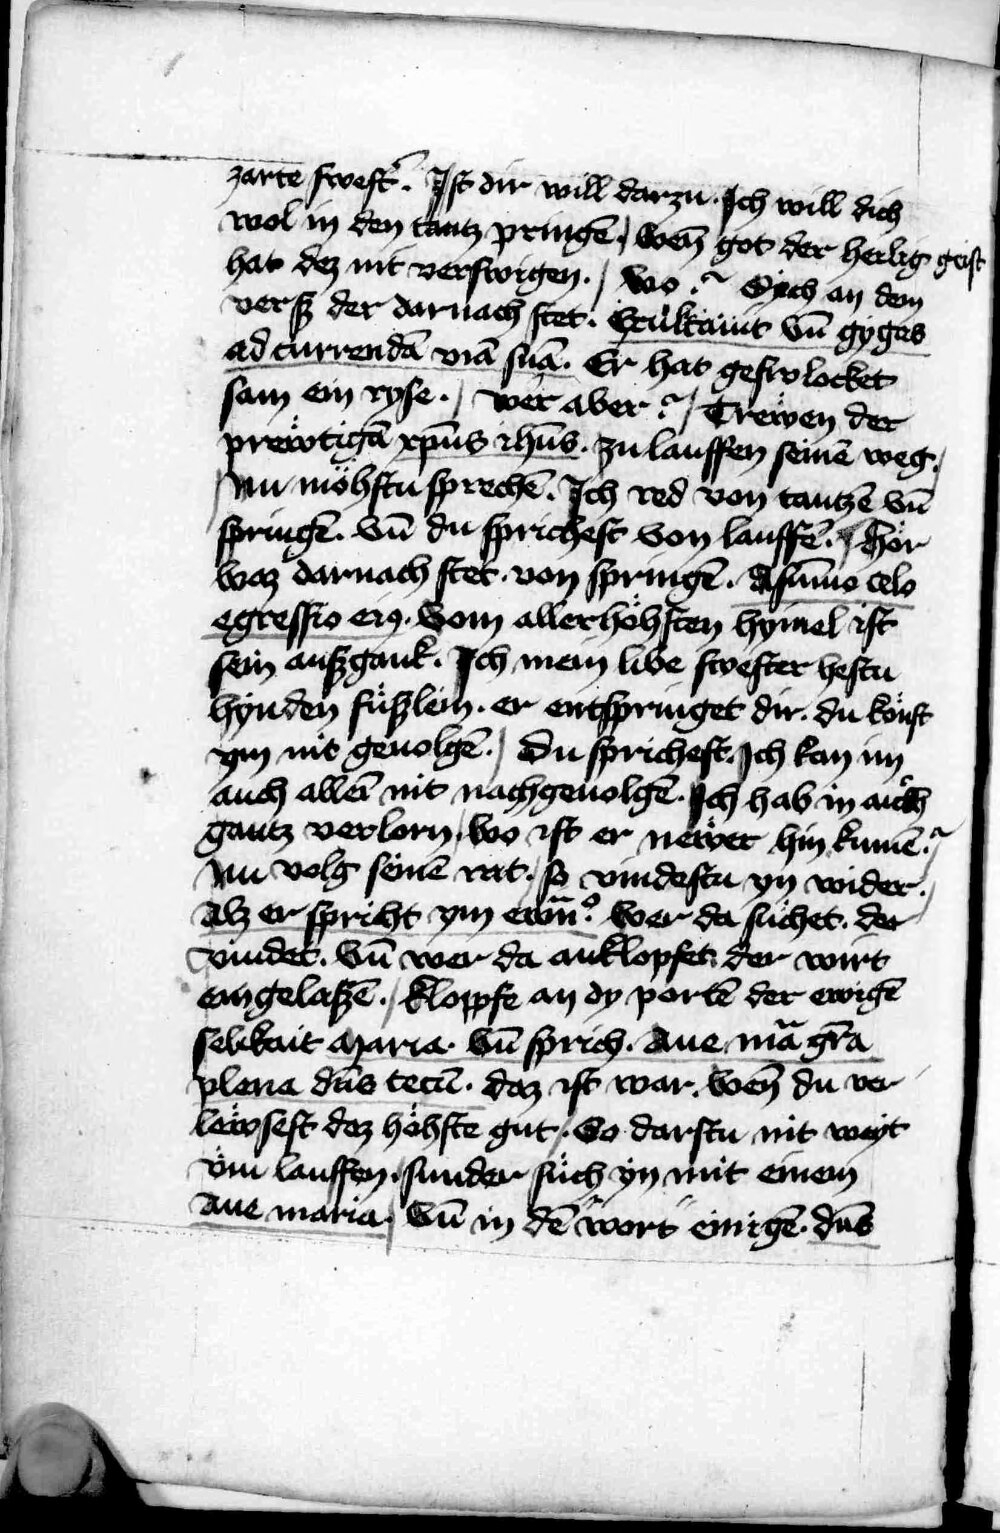 zarte swest̄. Ist dir will darzu. Ich will dich
wol in den tantz pringē. / Wen̄ got der heilig geist
hat dez nit verswigen. / Wo ? Sich an dem
versz der darnach stet. Exultauit vn̄ gygas
ad currendā viā suā. Er hat gefrolocket
sam ein ryse. / wer aber ? / Trewen der
prewtigā xp̄us ihūs. zu lauffen seinē weg. /
Nu möhstu sprechē. Ich red von tantzē vn̄
springē. Vn̄ du sprichest von lauffē. / Hör
waz darnach stet. von springē. A sūmo celo
egressio ei9. Vom allerhöhsten hymel ist
sein auszgank. Ich mein libe swester hestu
hynden füszlein. er entspringet dir. du könst
ym nit geuolgē. / Du sprichest. Ich kan im
auch alleī nit nachgeuolgē. Ich hab in auch
gantz verlorn / wo ist er newer hin kumē. ? /
Nu volg seinē rat. / so vindestu yn wider. /
Alz er spricht ym ewān. Wer da suchet. der
vindet. Vn̄ wer da anklopfet der wirt
eingelaszē. / Klopfe an dy portē der ewigē
selikait Maria. Vn̄ sprich. Aue mā gr̄a
plena dn̄s tecū. daz ist war. Wen̄ du ver
lewsest daz höhste gut / So darstu nit weyt
vm lauffen. / sunder such yn mit einem
Aue maria. / Vn̄ in dē wort einigē. dn̄s